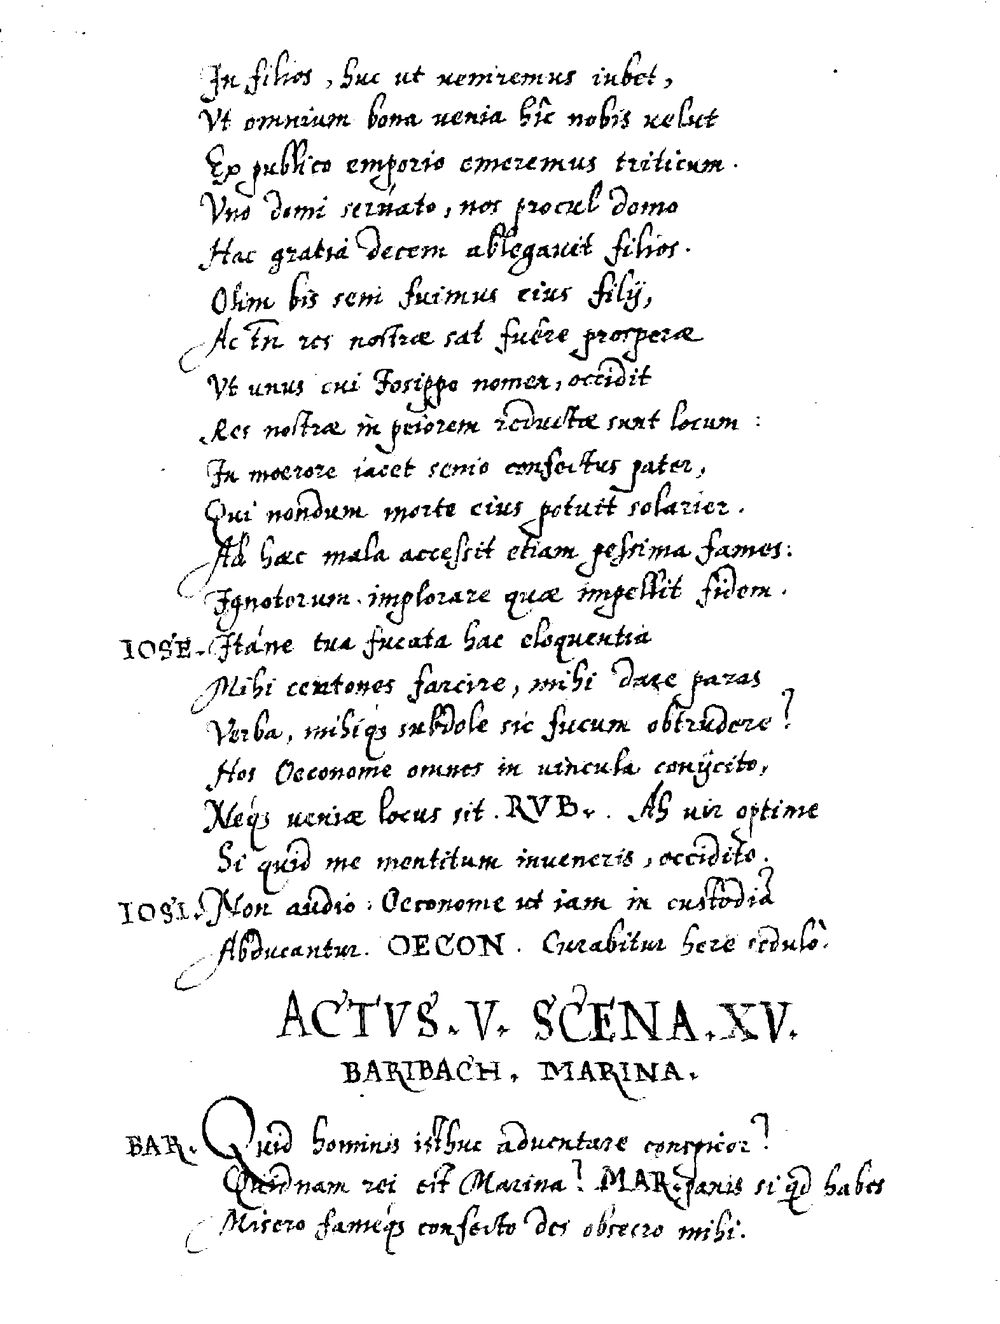 In filios, huc ut ueniremus iubet,
Vt omnium bona uenia hîc nobis uelut
Ex publico emporio emeremus triticum.
Vno domi seruato, nos procul domo
Hac gratia decem ablegauit filios.
Olim bis seni fuimus eius filij,
Ac tñ res nostræ sat fuêre prosperæ
Vt unus cui Iosippo nomen, occidit
Res nostræ in peiorem reductæ sunt locum:
In moerore iacet senio confectus pater,
Qui nondum morte eius potuit solarier.
Ad hæc mala accessit etiam pessima fames:
Ignotorum implorare quæ impellit fidem.
IOSE. Itáne tua fucata hac eloquentia
Mihi centones farcire, mihi dare paras
Verba, mihiq; subdole sic fucum obtrudere?
Hos Oeconome omnes in uincula conijcito,
Neq; ueniæ locus sit. RVB. Ah uir optime
Si quid me mentitum inueneris, occidito.
IOSI. Non audio: Oeconome ut iam in custodia
Abducantur. OECON. Curabitur here sedulò.
ACTVS. V. SCENA. XV.
BARIBACH. MARINA.
BAR. Quid hominis isthuc aduentare conspicor?
Quidnam rei est Marina? MAR. panis si qd habes
Misero fameq; confecto des obsecro mihi.